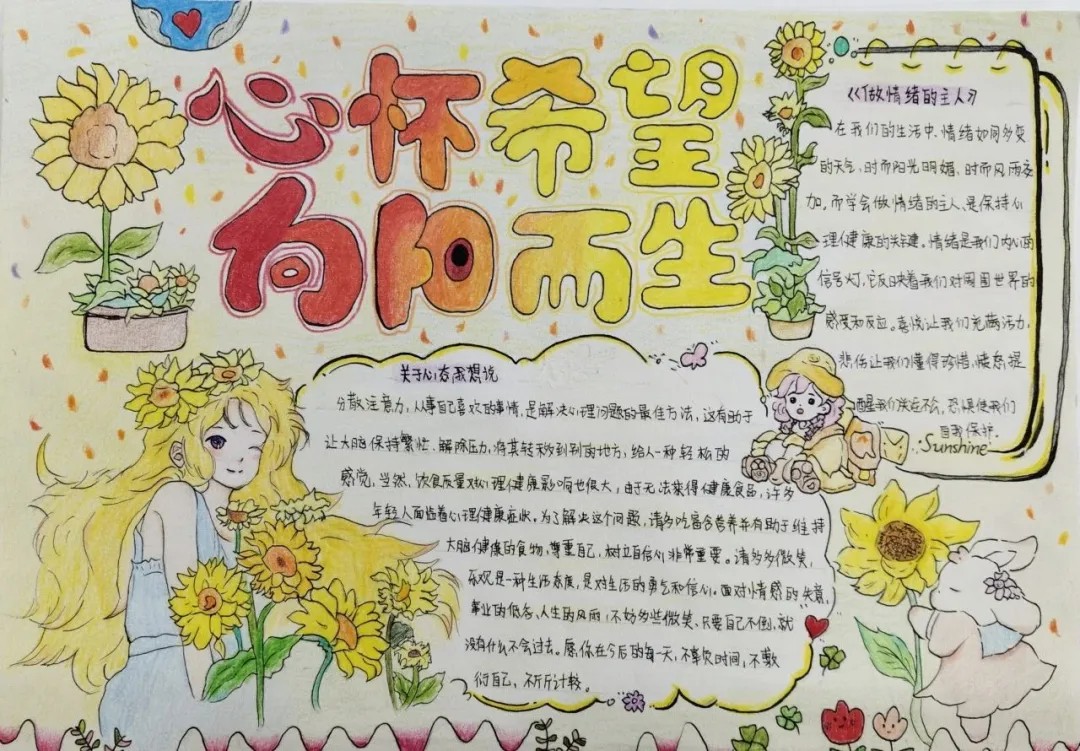 心怀希望
向阳而生
《做情绪的主人》
在我们的生活中、情绪如同多变
的天气，时而阳光明媚，时而风雨交
加。而学会做情绪的主人、是保持心
理健康的关键。情绪是我们内心的
信号灯，它反映着我们对周围世界的
感受和反应。喜悦让我们充满活力，
悲伤让我们懂得珍惜，愤怒提
醒我们决定不公，恐惧使我们
自我保护.
Sunshine
关于心态我想说
分散注意力，从事自己喜欢的事情，是解决心理问题的最佳方法，这有助于
让大脑保持繁忙、解除压力，将其转移到别的地方，给人一种轻松的
感觉，当然，饮食质量对心理健康影响也很大，由于无法获得健康食品，许多
年轻人面临着心理健康症状。为了解决这个问题，请多吃富含营养并有助于维持
大脑健康的食物，尊重自己，树立自信心非常重要。请多多微笑，
乐观是一种生活态度，是对生活的勇气和信心。面对情感的失意，
事业的低谷、人生的风雨，不妨多些微笑、只要自己不倒，就
没有什么不会过去。愿你在今后的每一天，不辜负时间，不敷
衍自己，不斤斤计较。